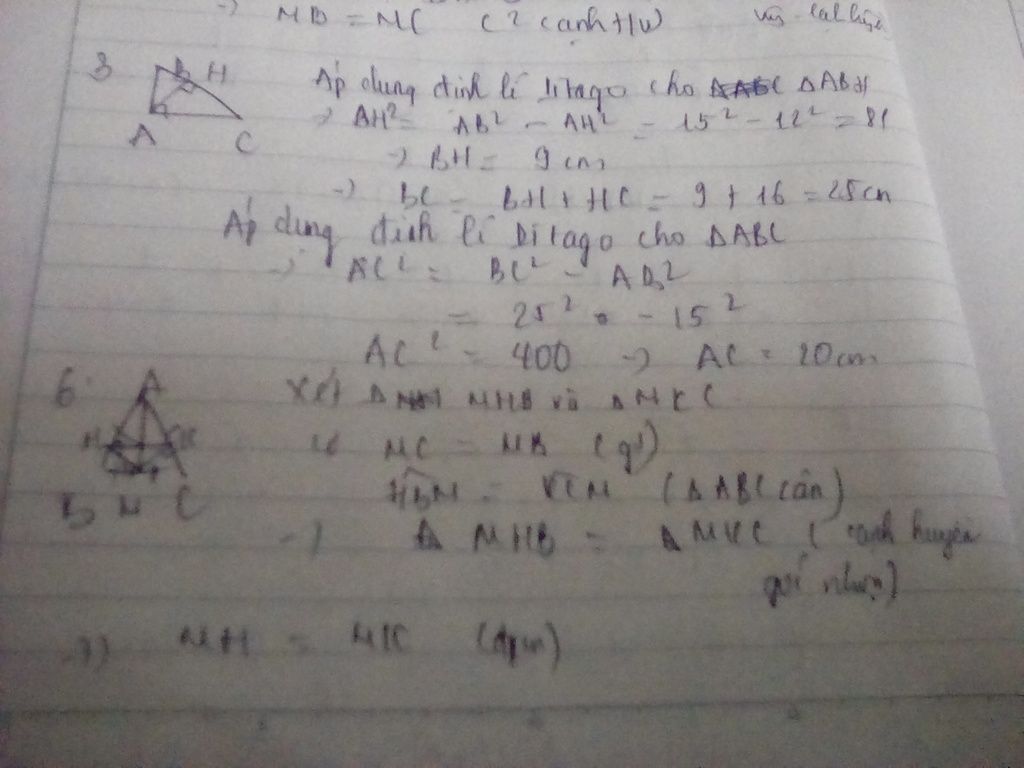 =) MB = MC (2 cạnh t/ư)
3
B H
A C
Áp dụng định lí Pitago cho ΔABH
=) AH² = AB² - AH² = 15² - 12² = 81
=) BH = 9 cm
=) BC = BH + HC = 9 + 16 = 25cm
Áp dụng định lí Pitago cho ΔABC
=) AC² = BC² - AB²
= 25² - 15²
AC² = 400 =) AC = 20cm
6.
A
H K
B M C
Xét Δ MHB và Δ MKC
MC = MB (gt)
HBM = KCM (ΔABC cân)
=) Δ MHB = Δ MKC (cạnh huyền
góc nhọn)
=) MH = MK (đpcm)